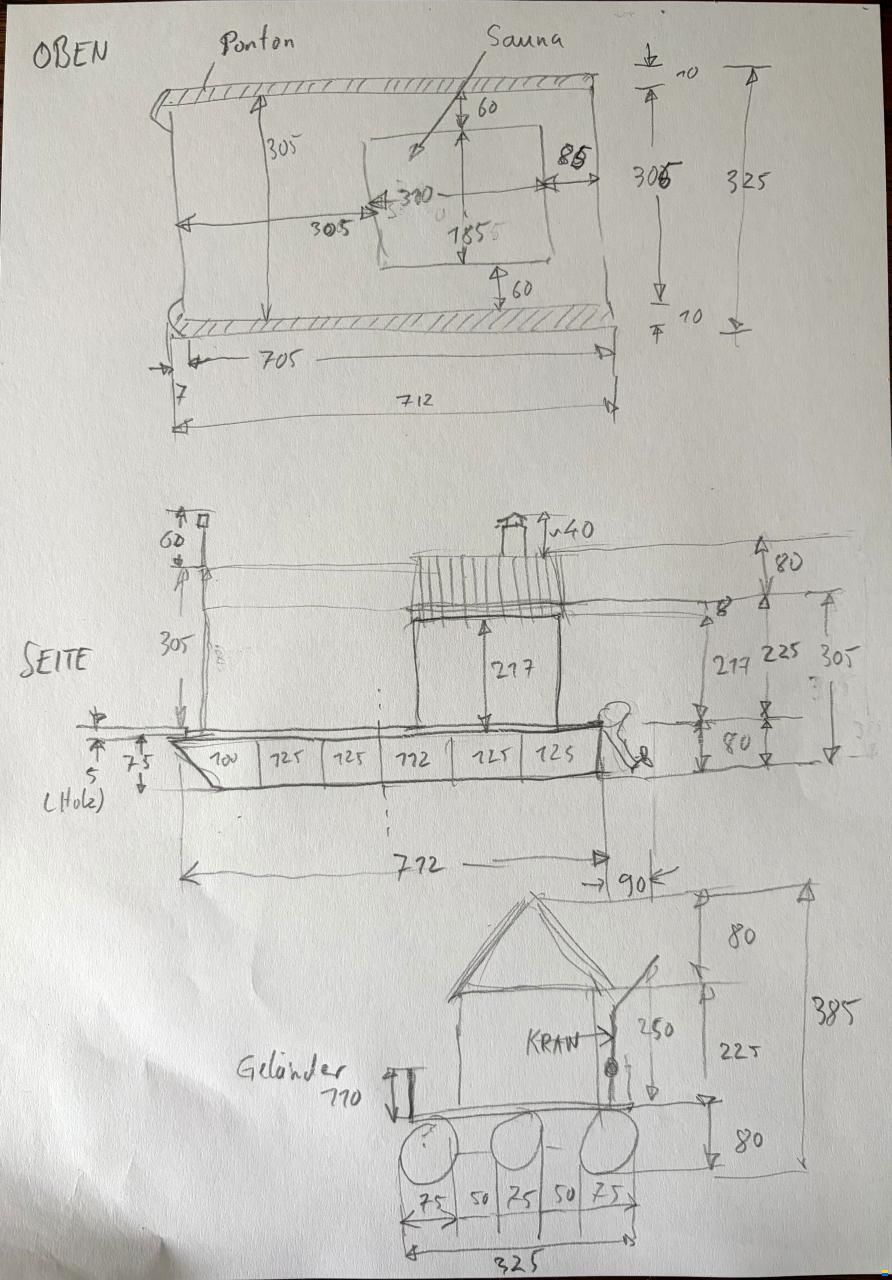 OBEN
Ponton
Sauna
10
60
305
85
325
305
310
305
185
60
10
705
7
712
60
~40
80
8
SEITE
305
217
217
225
305
80
100
125
125
112
125
125
75
5
(Holz)
712
90
80
385
KRAN
250
225
Geländer
110
80
75
50
75
50
75
325